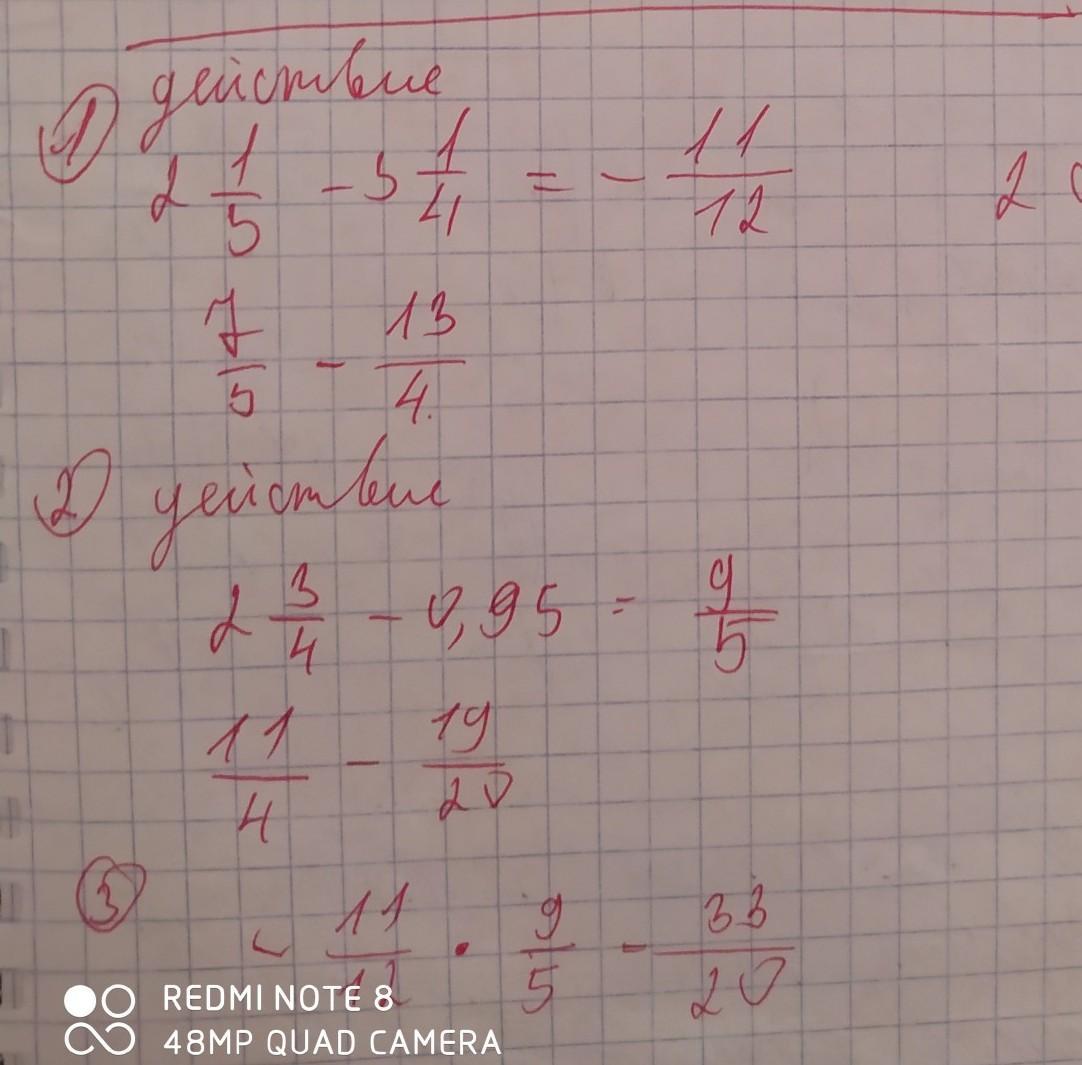 ① действие
2 1/5 - 3 1/4 = - 11/12
2
7/5 - 13/4
② действие
2 3/4 - 0,95 = 9/5
11/4 - 19/20
③
- 11/12 · 9/5 - 33/20
REDMI NOTE 8
48MP QUAD CAMERA